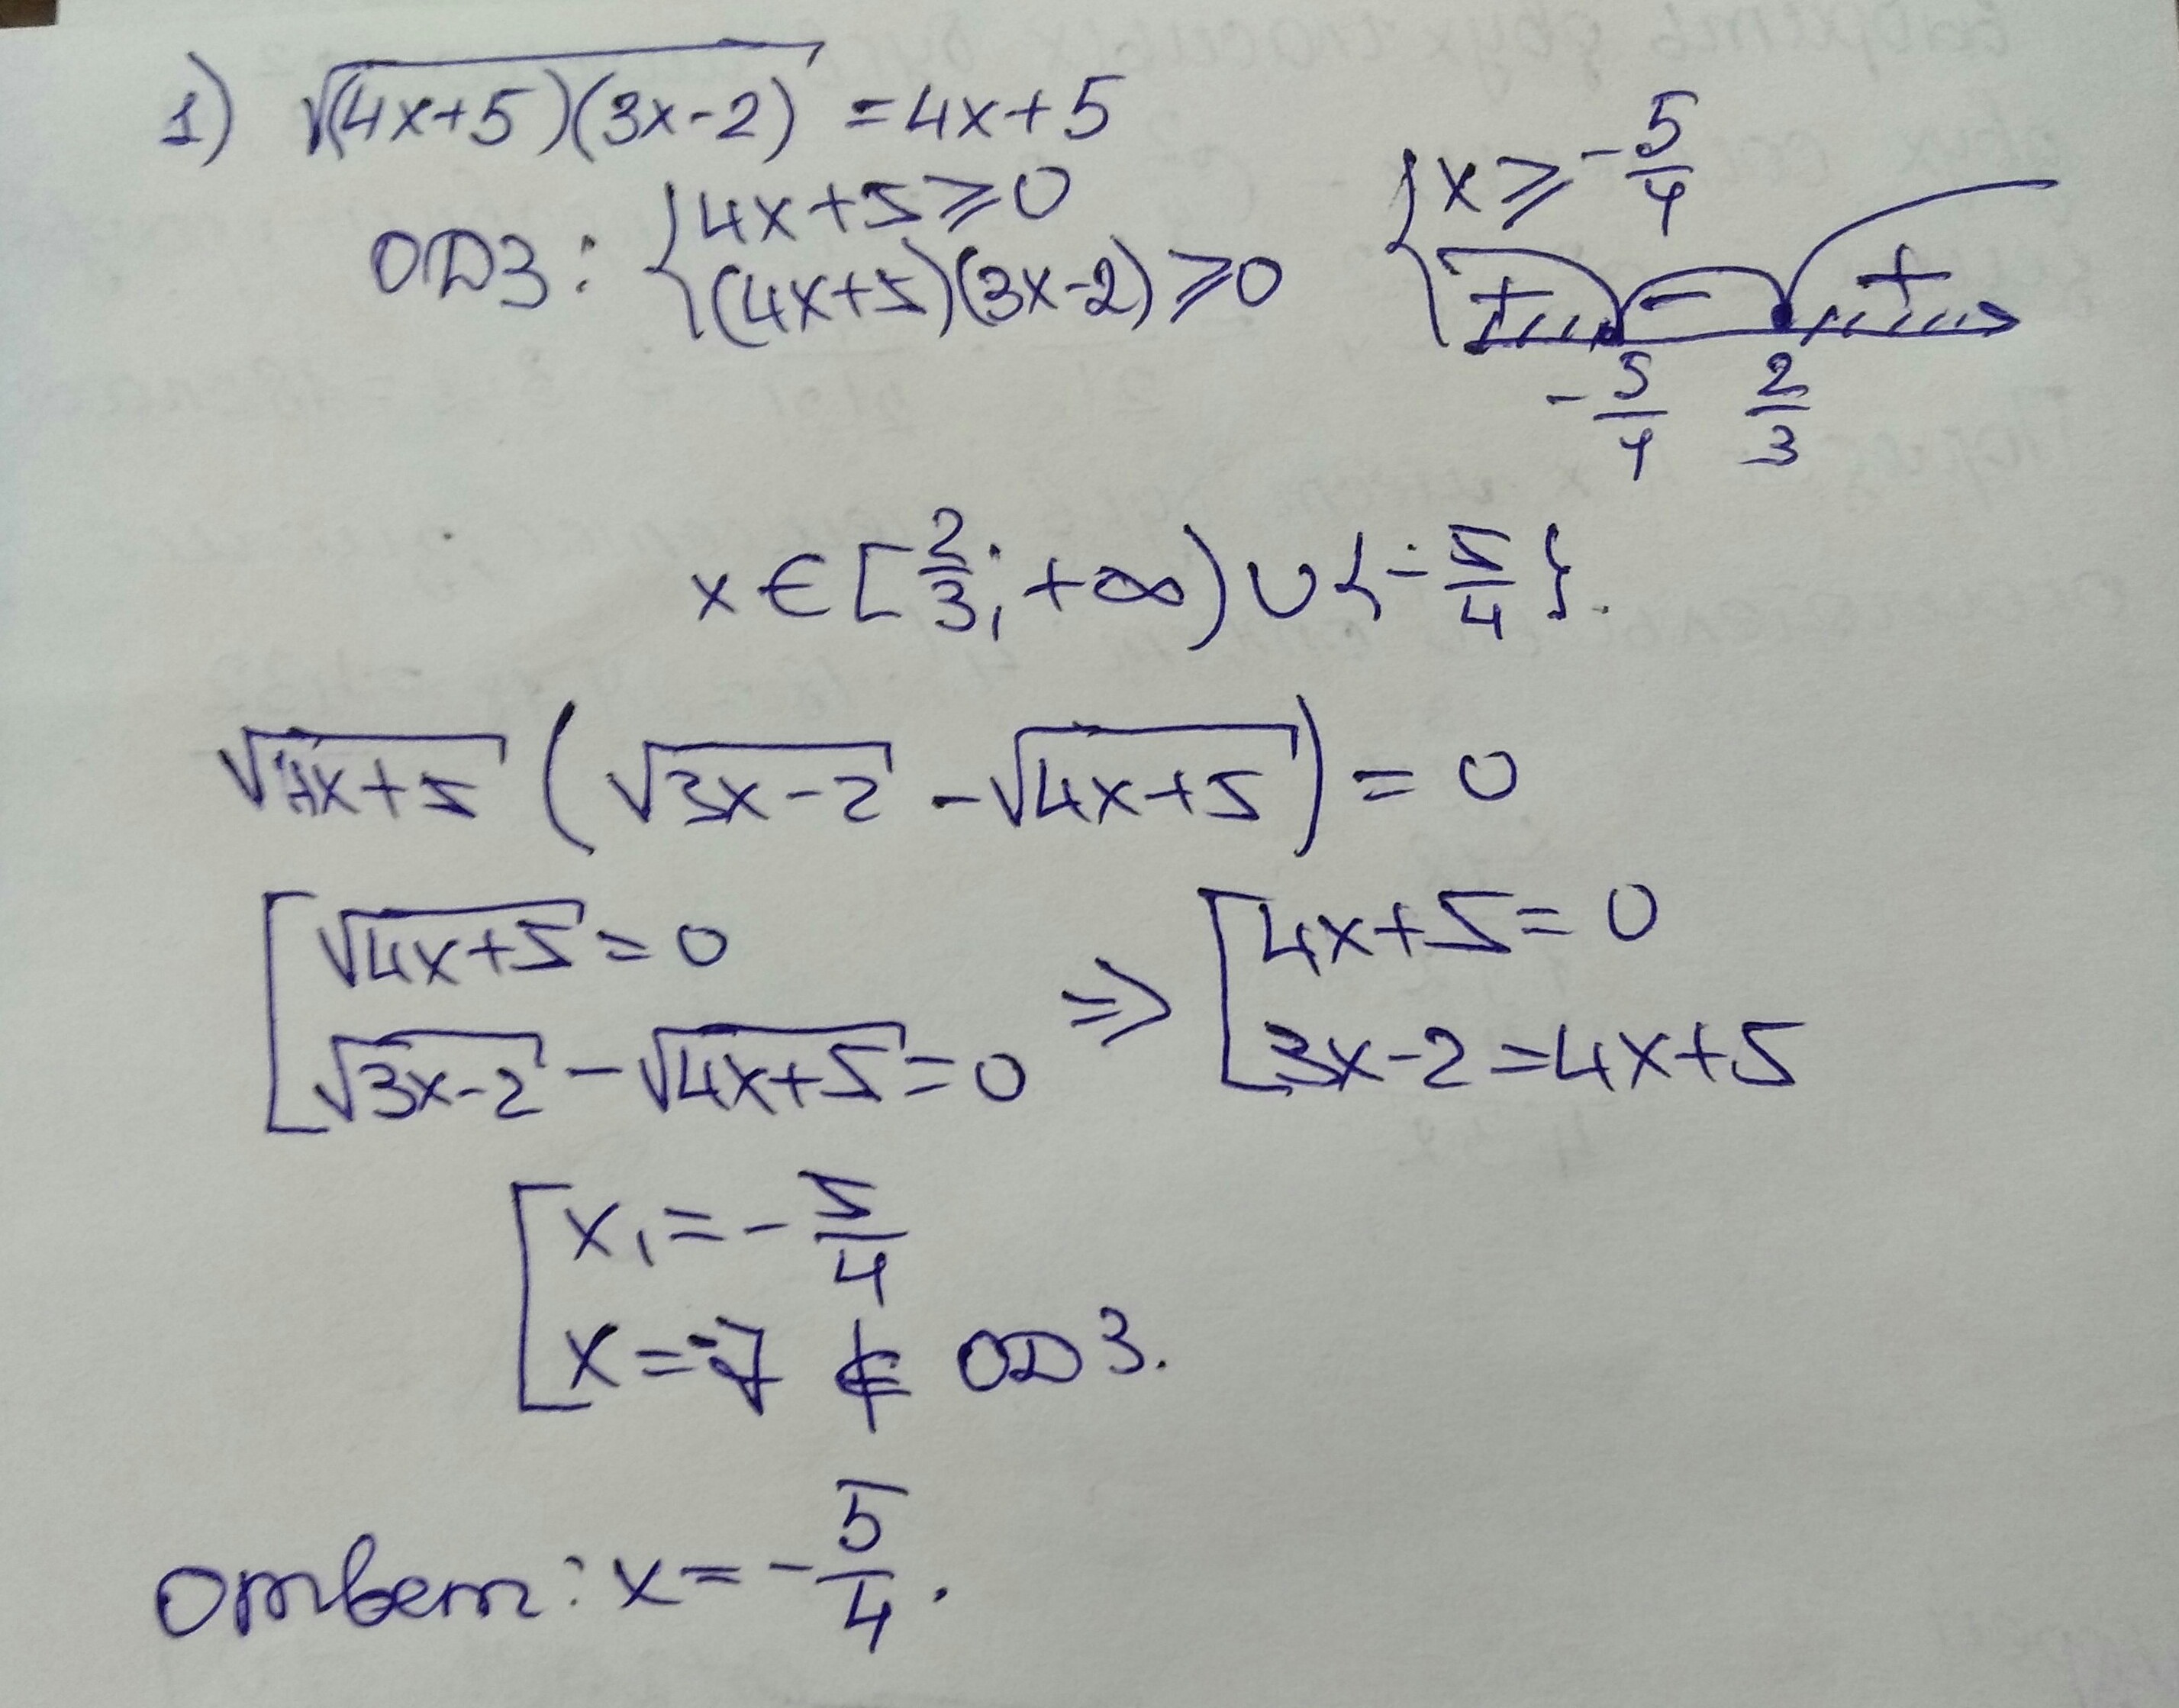 1) √(4x+5)(3x-2) = 4x+5
ОДЗ: { 4x+5⩾0
(4x+5)(3x-2)⩾0
{ x⩾-5/4
+ - +
-5/4 2/3
x∈[2/3; +∞)∪{-5/4}.
√4x+5 (√3x-2 - √4x+5) = 0
[ √4x+5 = 0
√3x-2 - √4x+5 = 0
=> [ 4x+5 = 0
3x-2 = 4x+5
[ x₁ = -5/4
x = -7 ∉ ОДЗ.
Ответ: x = -5/4.